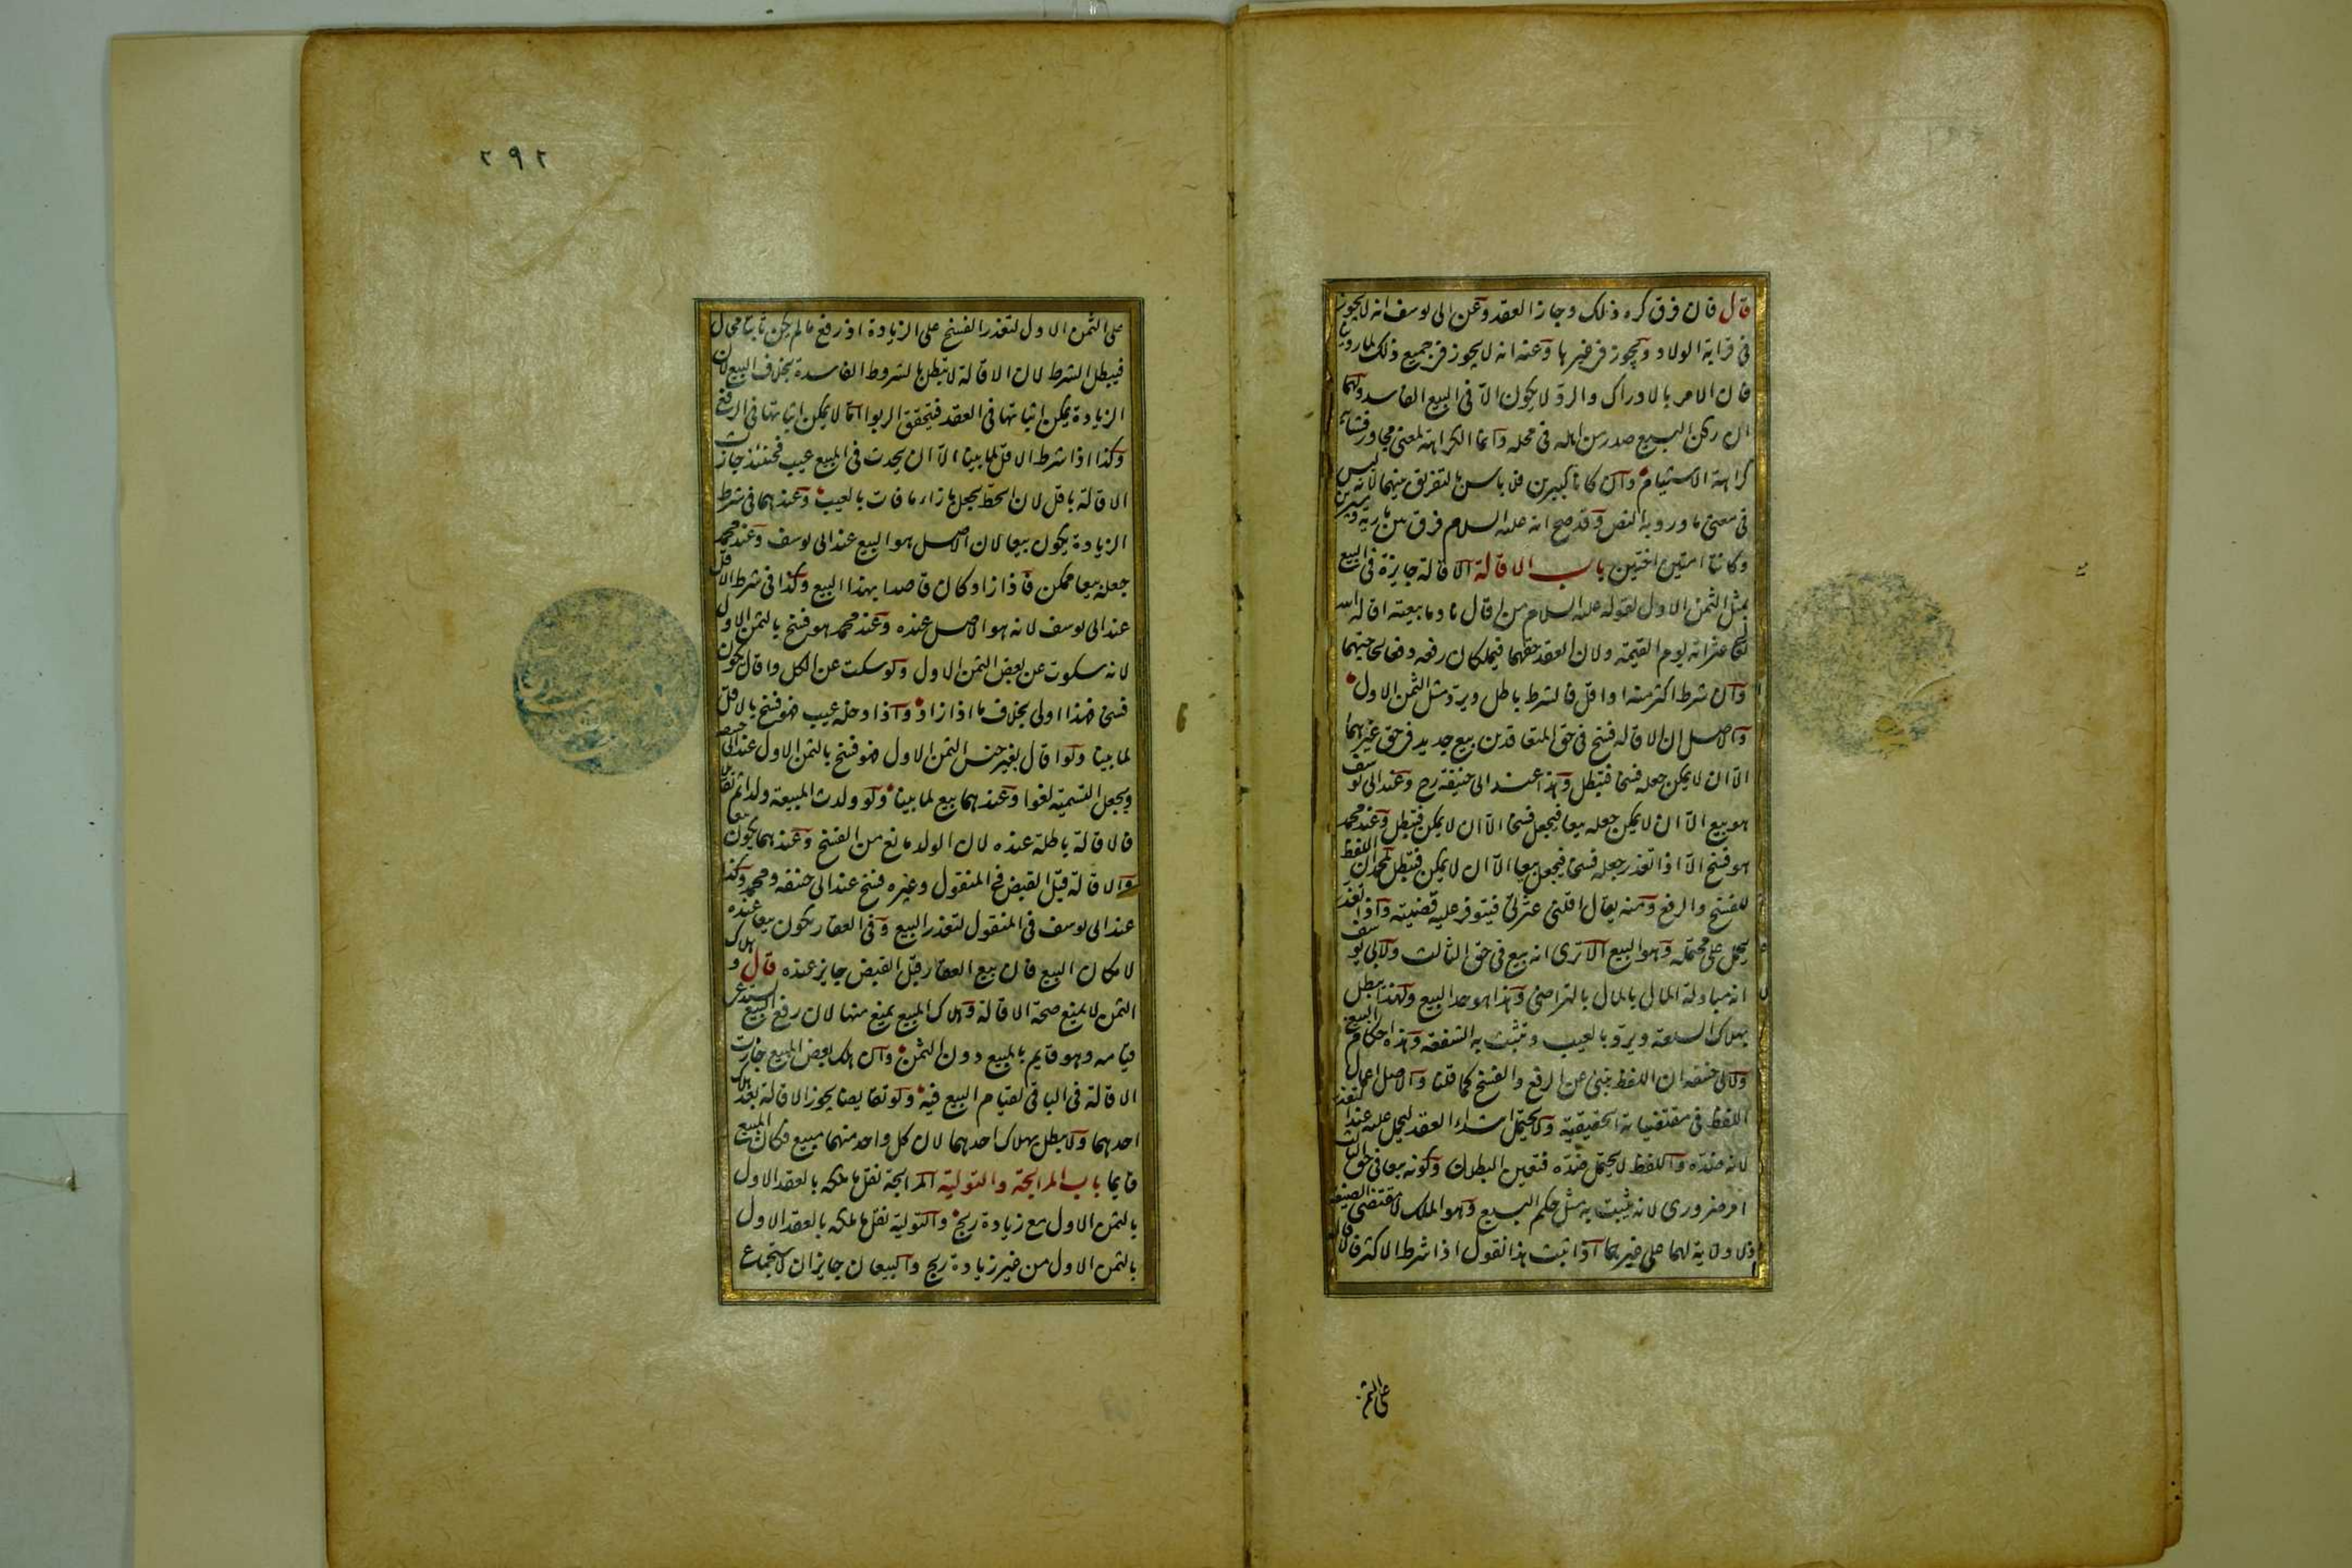 قال فان فرق كره ذلك وجاز العقد وعن ابى يوسف انه لا يجوز
فى قرابة الولاد ويجوز فى غيرها وعنه انه لا يجوز فى جميع ذلك لما روينا
فان الامر بالادراك والرد لا يكون الا فى البيع الفاسد ولهما
ان ركن البيع صدر من اهله فى محله وانما الكراهة لمعنى مجاور فشابه
كراهة الاستيام وان كانا كبيرين فلا باس بالتفريق بينهما لانه ليس
فى معنى ما ورد به النص وقد صح انه عليه السلام فرق بين مارية وسيرين
وكانتا امتين اختين باب الاقالة الاقالة جايزة فى البيع
بمثل الثمن الاول لقوله عليه السلام من اقال نادما بيعته اقال الله
عثراته يوم القيمة ولان العقد حقهما فيملكان رفعه دفعا لحاجتهما
وان شرط اكثر منه او اقل فالشرط باطل ويرد مثل الثمن الاول
والاصل ان الاقالة فسخ فى حق المتعاقدين بيع جديد فى حق غيرهما
الا ان لا يمكن جعله فسخا فتبطل وهذا عند ابى حنيفة رح وعند ابى يوسف
هو بيع الا ان لا يمكن جعله بيعا فيجعل فسخا الا ان لا يمكن فتبطل وعند محمد
هو فسخ الا اذا تعذر جعله فسخا فيجعل بيعا الا ان لا يمكن فتبطل لمحمد ان اللفظ
للفسخ والرفع ومنه يقال اقلنى عثرتى فيتوفر عليه قضيته واذا تعذر
يحمل على محتمله وهو البيع الا ترى انه بيع فى حق الثالث ولابى يوسف
انه مبادلة المال بالمال بالتراضى وهذا هو حد البيع ولهذا يبطل
بهلاك السلعة ويرد بالعيب وتثبت به الشفعة وهذه احكام البيع
ولابى حنيفة ان اللفظ ينبئ عن الرفع والفسخ كما قلنا والاصل اعمال
اللفظ فى مقتضياته الحقيقية ولا يحتمل ابتداء العقد ليحمل عليه عند التعذر
لانه ضده واللفظ لا يحتمل ضده فتعين البطلان وكونه بيعا فى حق الثالث
امر ضرورى لانه يثبت به مثل حكم البيع وهو الملك لا مقتضى الصيغة
اذ لا ولاية لهما على غيرهما اذا ثبت هذا نقول اذا شرط الاكثر فالاقالة
على الثمن
٢٩٢
على الثمن الاول لتعذر الفسخ على الزيادة اذ رفع ما لم يكن ثابتا محال
فيبطل الشرط لان الاقالة لا تبطل بالشروط الفاسدة بخلاف البيع لان
الزيادة يمكن اثباتها فى العقد فيتحقق الربوا اما لا يمكن اثباتها فى الرفع
وكذا اذا شرط الاقل لما بينا الا ان يحدث فى المبيع عيب فحينئذ جازت
الاقالة باقل لان الحط يجعل بازاء ما فات بالعيب وعندهما فى شرط
الزيادة يكون بيعا لان الاصل هو البيع عند ابى يوسف وعند محمد
جعله بيعا ممكن فاذا زاد كان قاصدا بهذا البيع وكذا فى شرط الاقل
عند ابى يوسف لانه هو الاصل عنده وعند محمد هو فسخ بالثمن الاول
لانه سكوت عن بعض الثمن الاول ولو سكت عن الكل واقال يكون
فسخا فهذا اولى بخلاف ما اذا زاد واذا دخله عيب فهو فسخ بالاقل
لما بينا ولو اقال بغير جنس الثمن الاول فهو فسخ بالثمن الاول عند ابى حنيفة
ويجعل التسمية لغوا وعندهما بيع لما بينا ولو ولدت المبيعة ولدا ثم تقايلا
فالاقالة باطلة عنده لان الولد مانع من الفسخ وعندهما يكون بيعا
والاقالة قبل القبض فى المنقول وغيره فسخ عند ابى حنيفة ومحمد وكذا
عند ابى يوسف فى المنقول لتعذر البيع وفى العقار يكون بيعا عنده
لامكان البيع فان بيع العقار قبل القبض جايز عنده قال وهلاك
الثمن لا يمنع صحة الاقالة وهلاك المبيع يمنع منها لان رفع البيع يستدعى
قيامه وهو قايم بالمبيع دون الثمن وان هلك بعض المبيع جازت
الاقالة فى الباقى لقيام البيع فيه ولو تقايضا يجوز الاقالة بعد هلاك
احدهما ولا يبطل بهلاك احدهما لان كل واحد منهما مبيع فكان المبيع
قايما باب المرابحة والتولية المرابحة نقل ما ملكه بالعقد الاول
بالثمن الاول مع زيادة ربح والتولية نقل ما ملكه بالعقد الاول
بالثمن الاول من غير زيادة ربح والبيعان جايزان لاستجماع